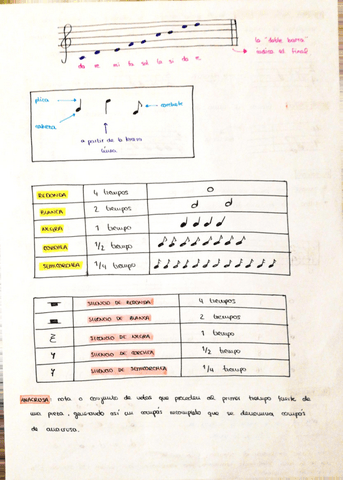 la "doble barra"
indica el final
do re mi fa sol la si do re
plica
corchete
cabeza
a partir de la tercera
línea
REDONDA 4 tiempos
BLANCA 2 tiempos
NEGRA 1 tiempo
CORCHEA 1/2 tiempo
SEMICORCHEA 1/4 tiempo
SILENCIO DE REDONDA 4 tiempos
SILENCIO DE BLANCA 2 tiempos
SILENCIO DE NEGRA 1 tiempo
SILENCIO DE CORCHEA 1/2 tiempo
SILENCIO DE SEMICORCHEA 1/4 tiempo
ANACRUSA: nota o conjunto de notas que preceden al primer tiempo fuerte de
una pieza, generando así un compás incompleto que se denomina compás
de anacrusa.